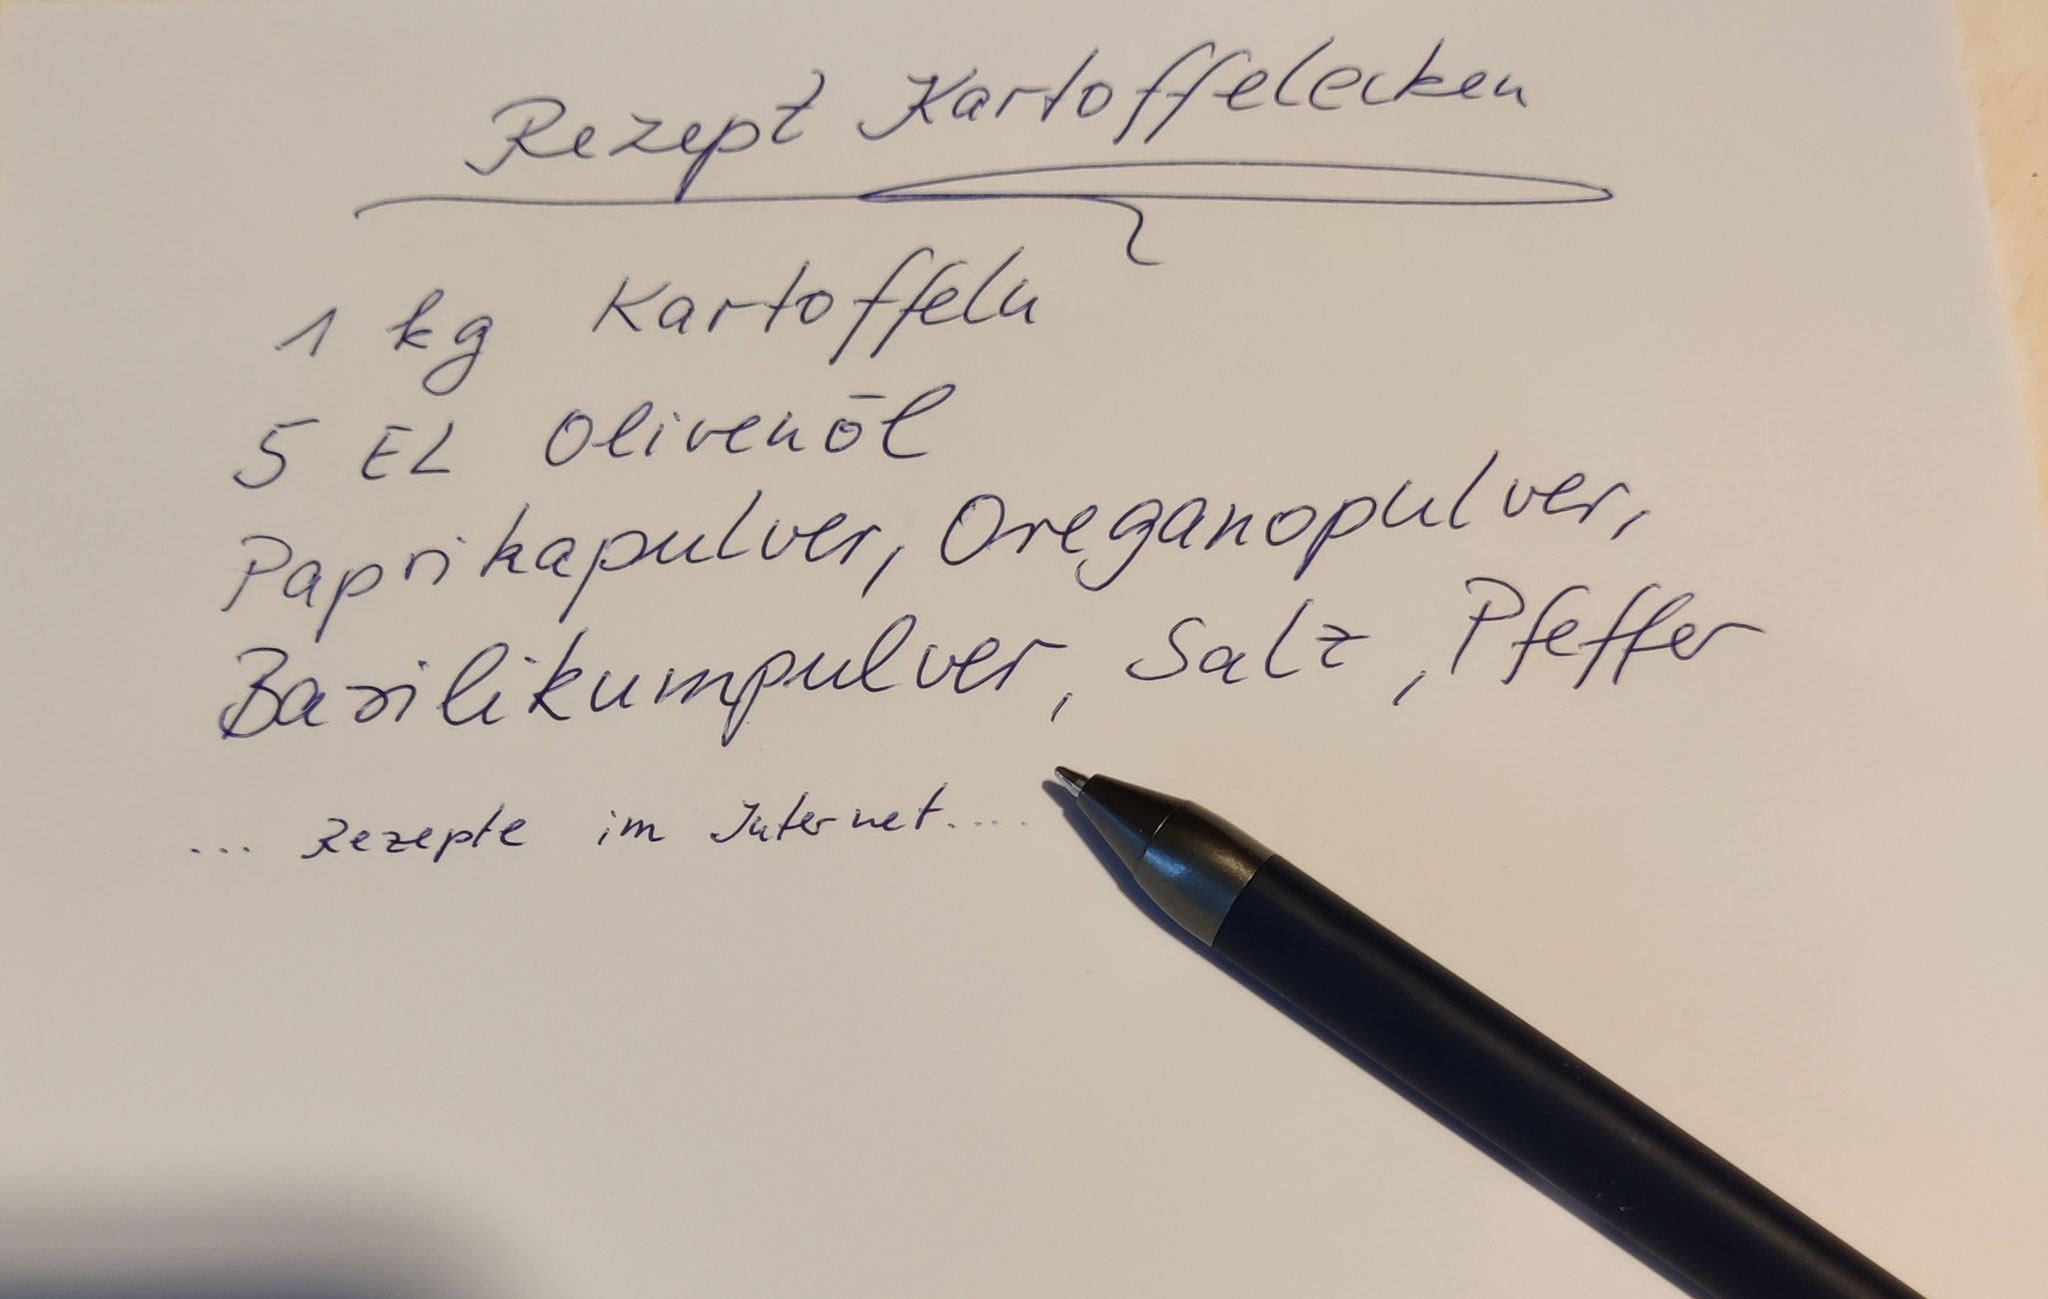 Rezept Kartoffelecken
1 kg Kartoffeln
5 EL Olivenöl
Paprikapulver, Oreganopulver,
Basilikumpulver, Salz, Pfeffer
... Rezepte im Internet....